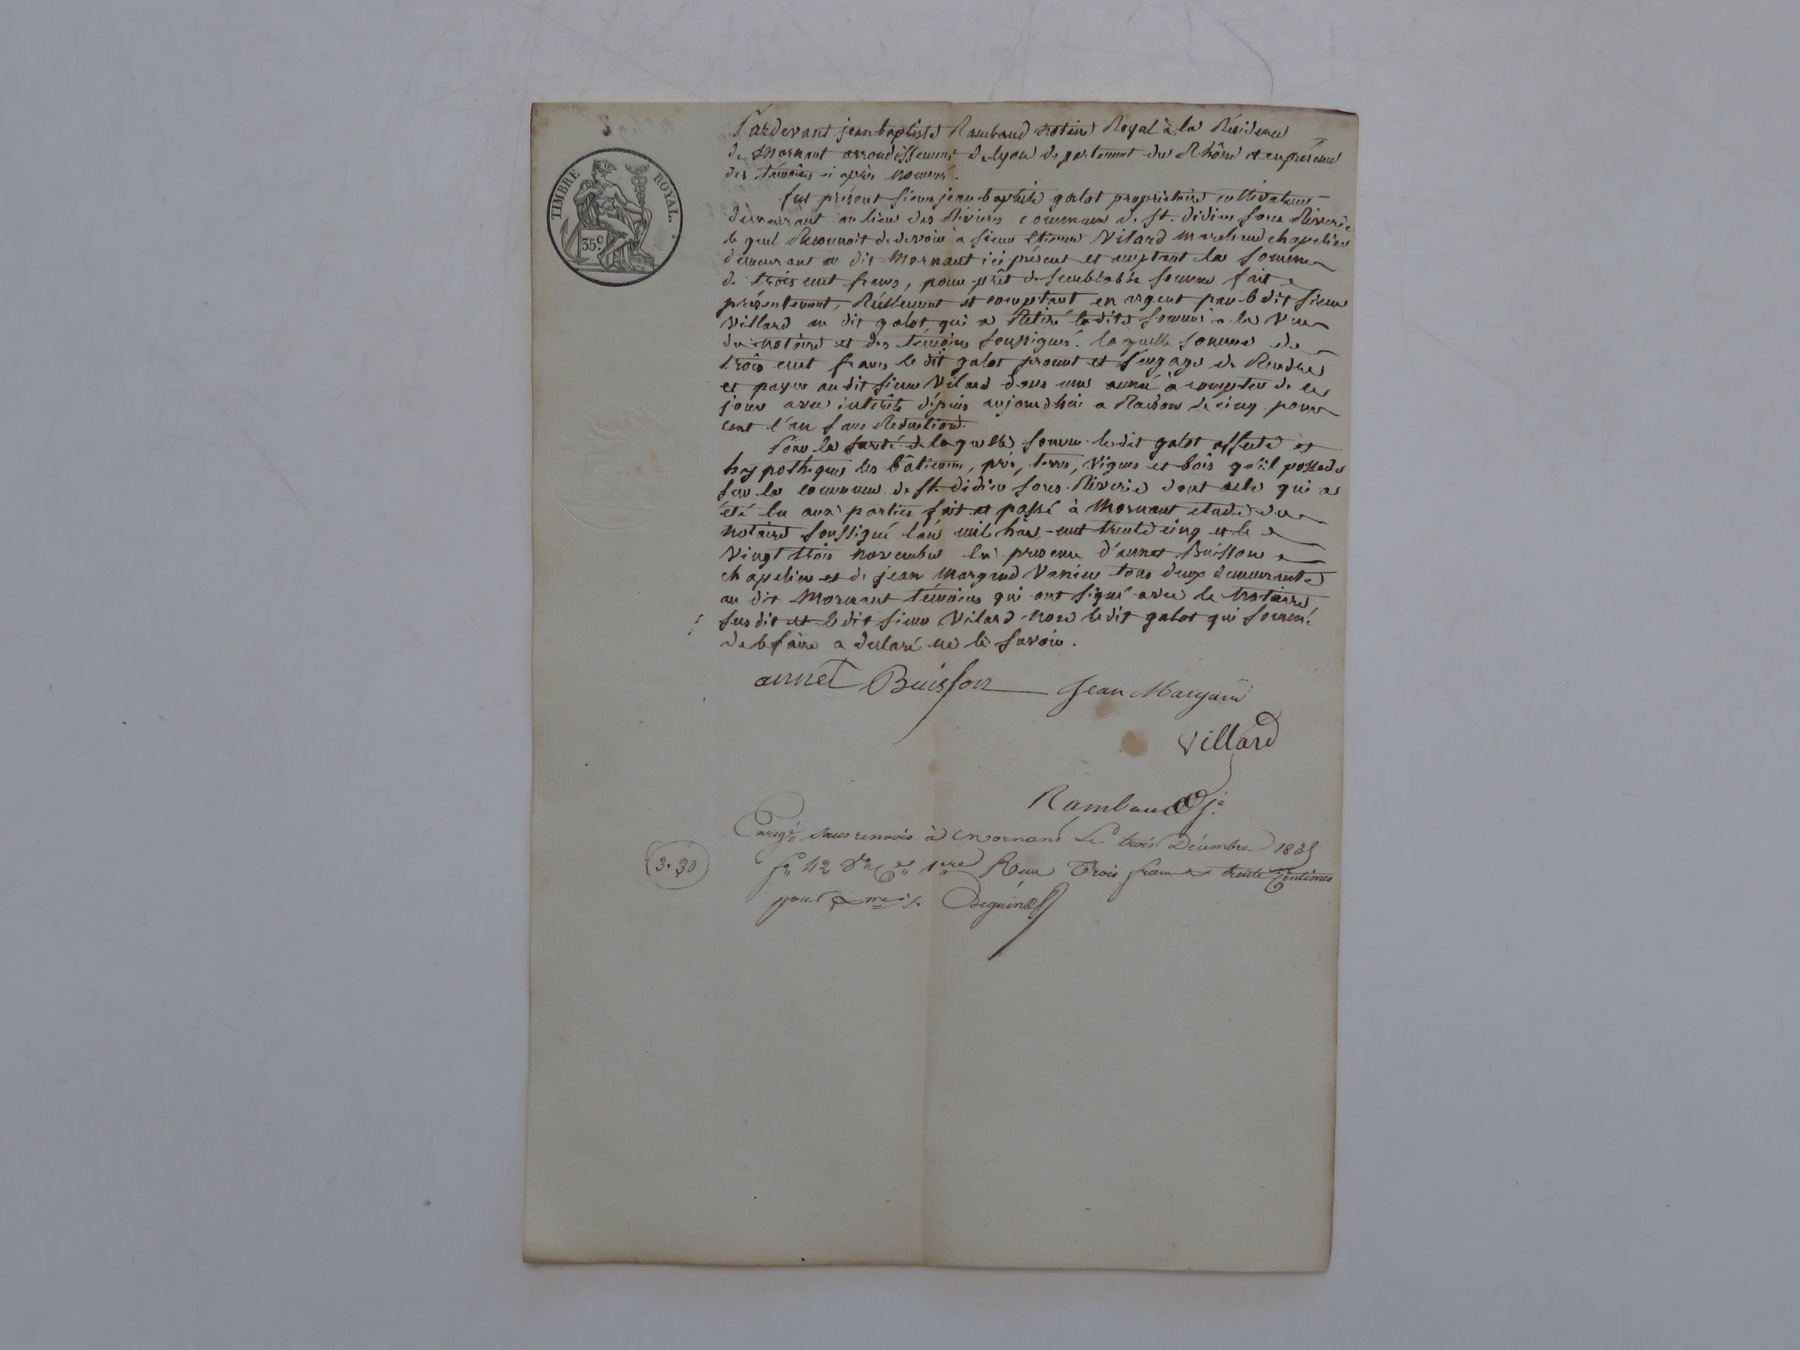 TIMBRE ROYAL.
35 c.
Pardevant jean baptiste Rambaud notaire Royal à la Résidence
de Mornant arrondissement de lyon departement du Rhône et en présence
des témoins ci après nommés.
fut présent sieur jean baptiste galot propriétaire cultivateur
demeurant au lieu des Rivieres commune de St. didier sous Riverie
le quel Reconnoit de devoir a sieur Etienne Vilard marchand chapelier
demeurant au dit Mornant ici présent et acceptant la somme
de trois cent francs, pour prêt de semblable somme fait
présentement, Réellement et comptant en argent par le dit sieur
Villard au dit galot, qui a Retiré la dite somme a la Vue
du notaire et des témoins soussignés. la quelle somme de
trois cent francs le dit galot promet et s'engage de Rendre
et payer au dit sieur Vilard dans une année à compter de ce
jour avec intérêts depuis aujourdhui a Raison de cinq pour
cent l'an sans Reduction.
Pour la sureté de la quelle somme le dit galot affecte et
hypotheques les bâtiments, pré, terres, vignes et bois qu'il possede
sur la commune de St. didier sous Riverie dont acte qui a
été lu aux parties fait et passé à Mornant etude du
notaire soussigné l'an mil huit-cent trente cinq et le
Vingt trois novembre en presence d'annet Buisson
chapelier et de jean Margand Vanier tous deux demeurants
au dit Mornant témoins qui ont signé avec le Notaire
susdit et le dit sieur Vilard non le dit galot qui sommé
de le faire a declaré ne le savoir.
annet Buisson Jean Margand
Villard
Rambaud
Enregé. sans renvois à Mornant le trois Décembre 1835
fo. 42 1re Reçu Trois francs trente Centimes
3.30
pour Xme